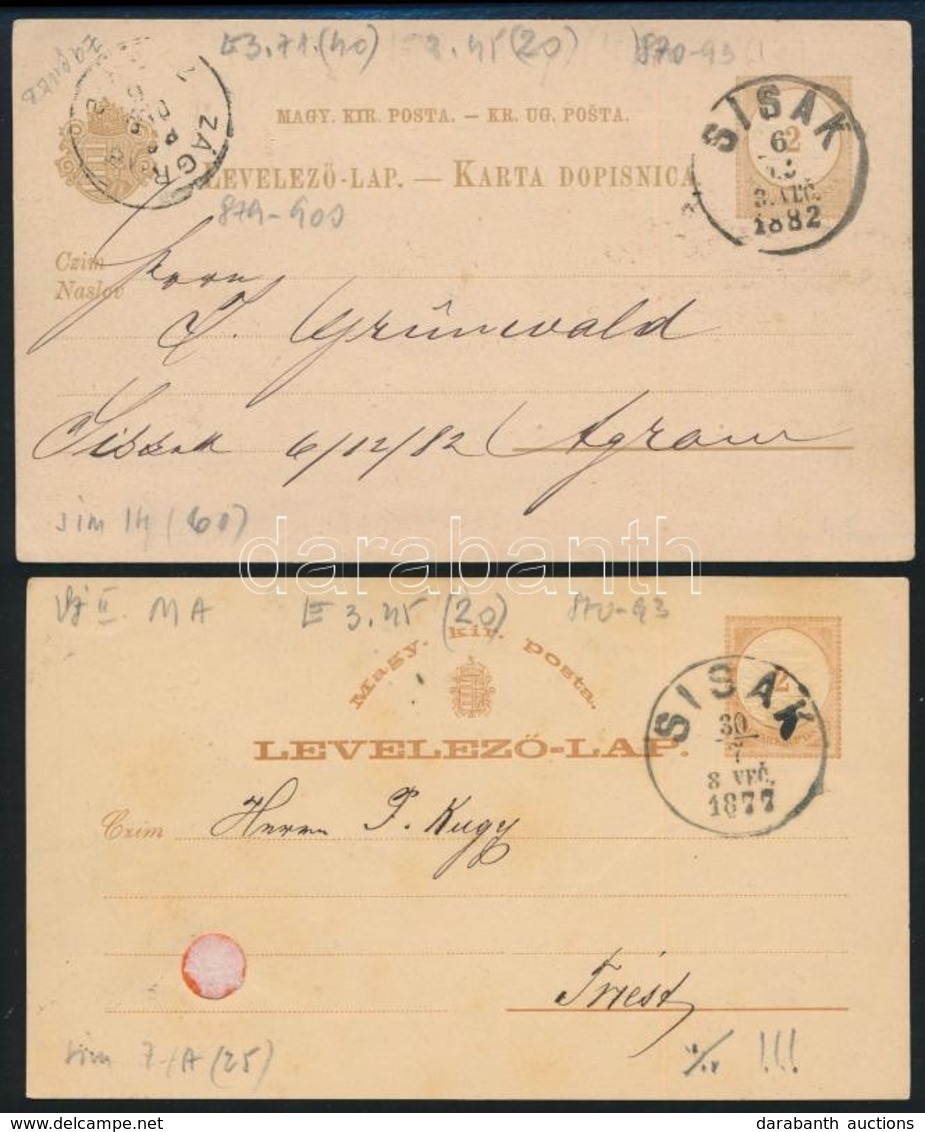 E 3.71.(40) E 3.45 (20) 870-93
ZÁGR
MAGY. KIR. POSTA. — KR. UG. POŠTA.
SISAK
6
2
8. VEČ.
1882
LEVELEZŐ-LAP. — KARTA DOPISNICA
879-900
Czim
Naslov
Herrn
J. Grünwald
Sissek 6/12/82 Agram
sim 14 (60)
darabanth
II. MA E 3.45 (20) 870-93
Magy. kir. posta.
LEVELEZŐ-LAP.
2
SISAK
30
7
8 VEČ.
1877
Czim Herrn P. Kugy
Triest
sim 7/A (25) !!!
darabanth auctions